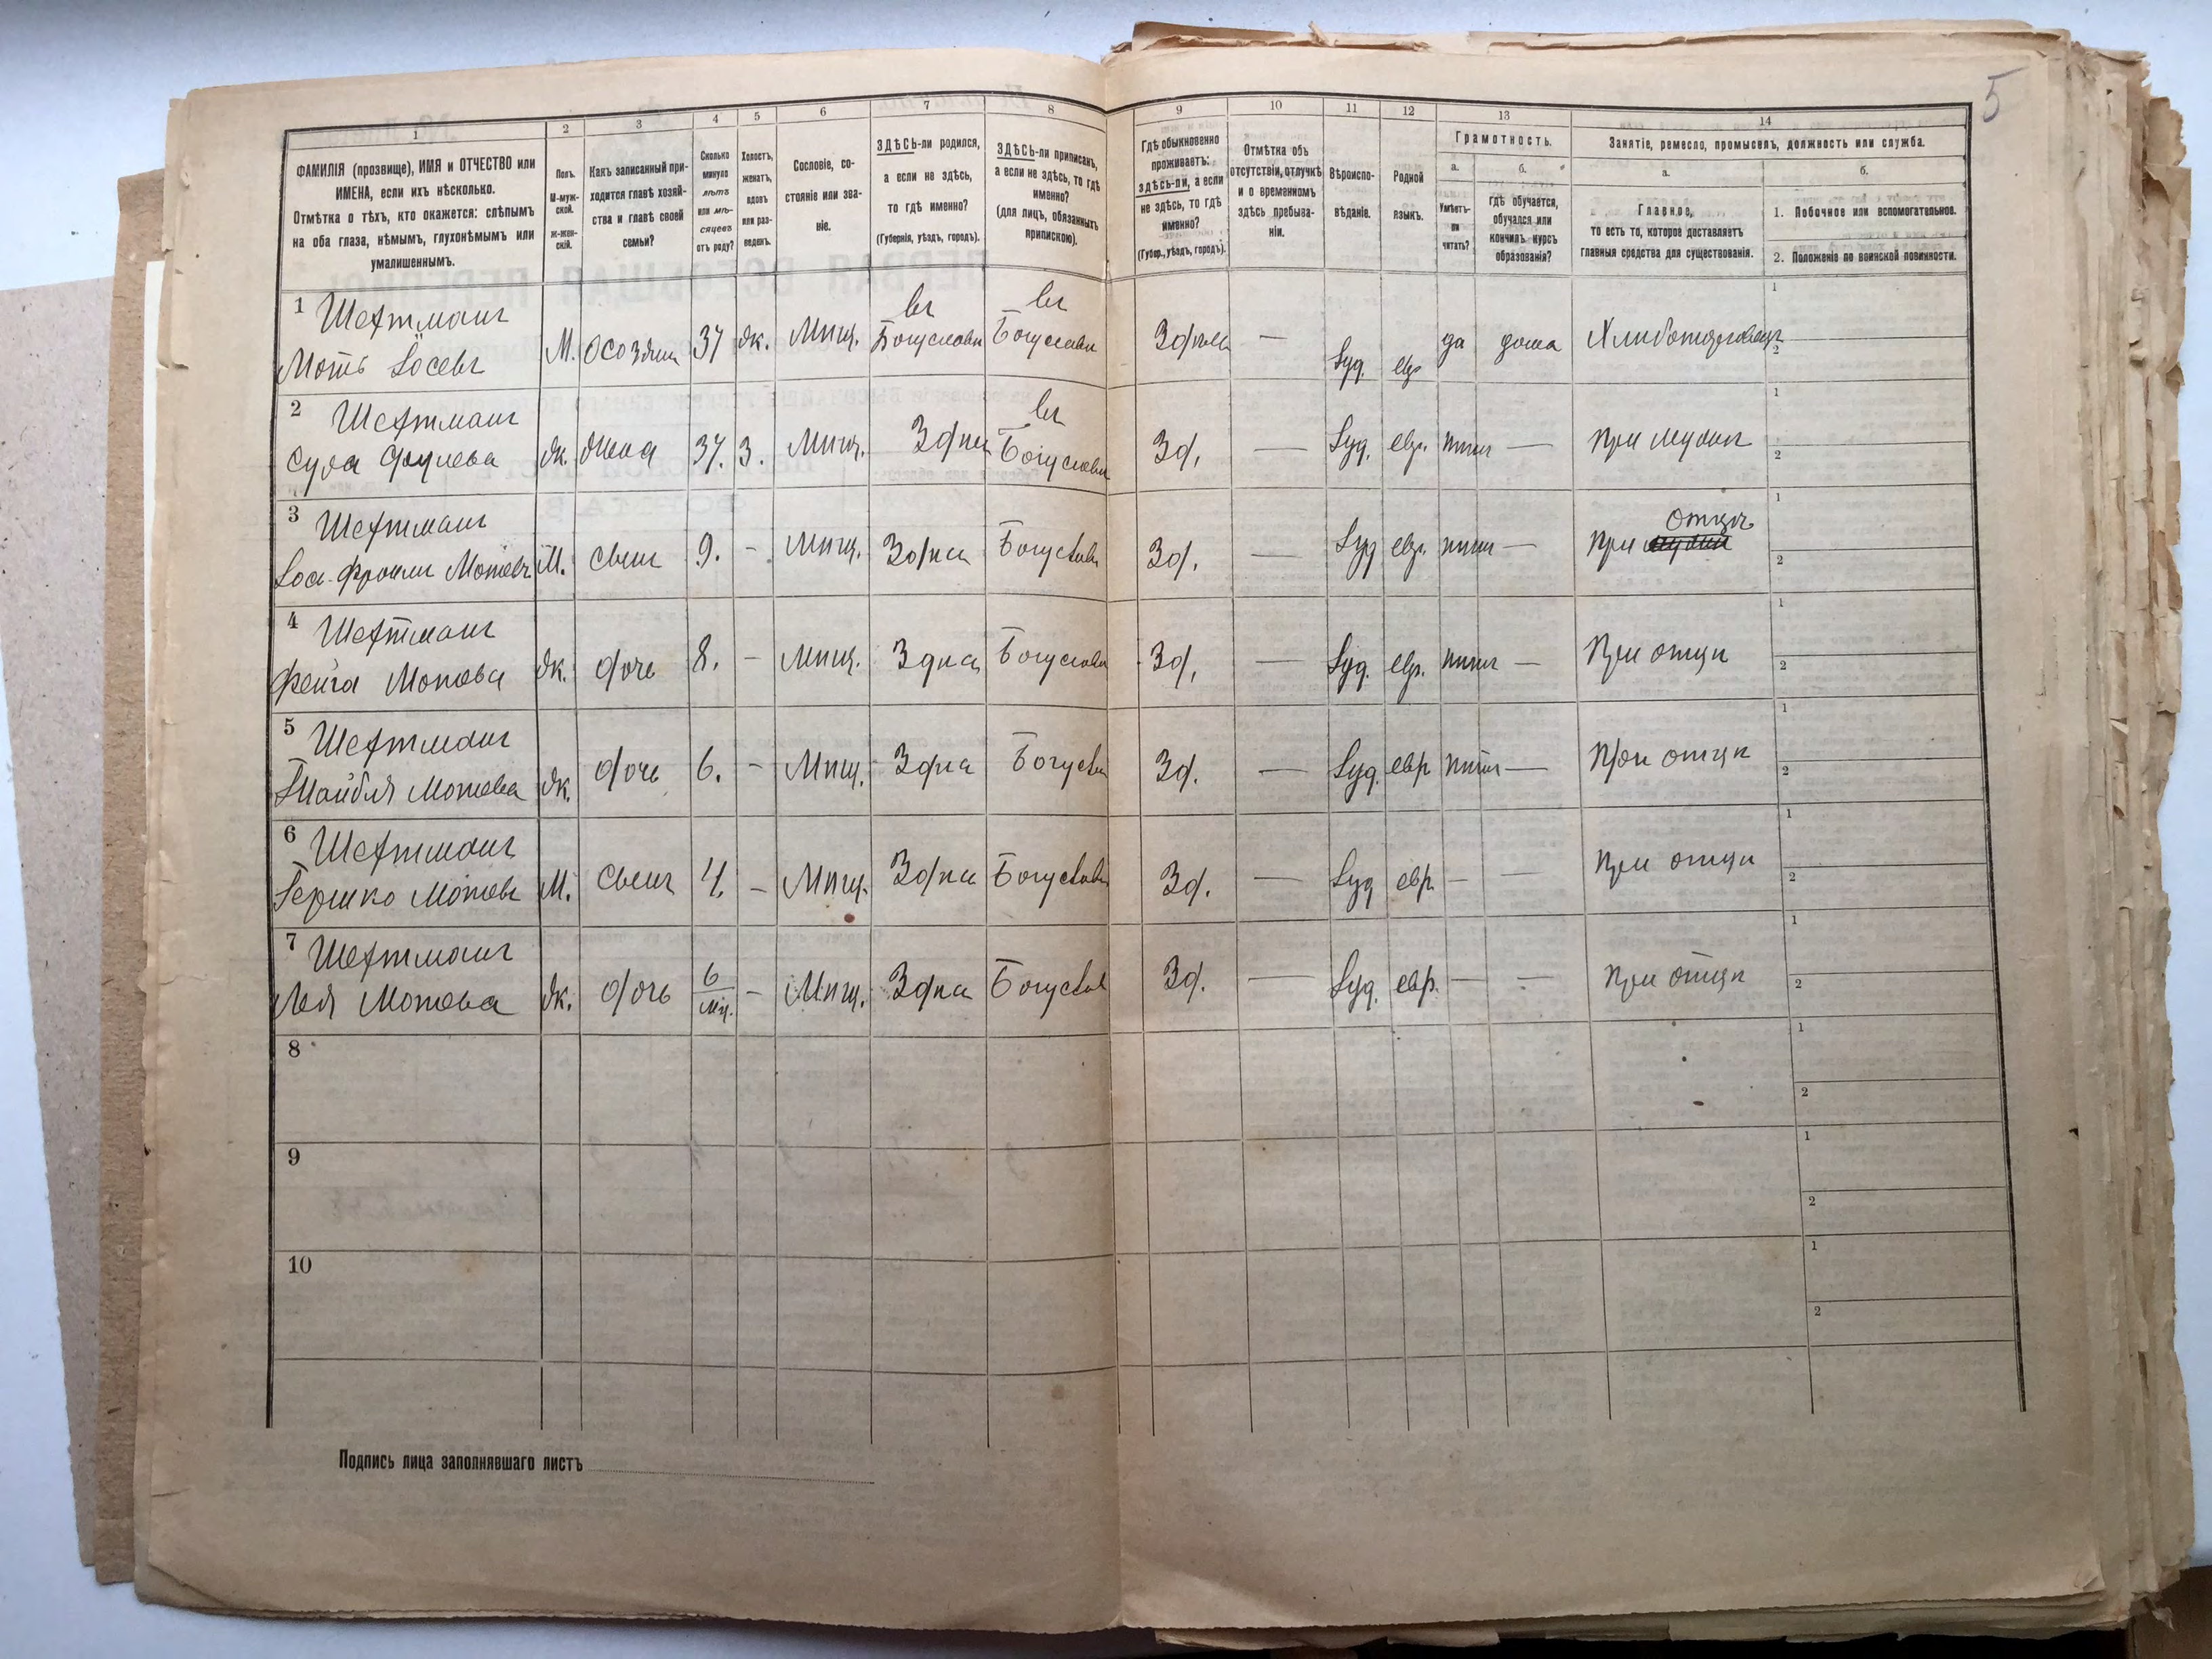 5
1
2
3
4
5
6
7
8
9
10
11
12
13
14
ФАМИЛІЯ (прозвище), ИМЯ и ОТЧЕСТВО или
ИМЕНА, если ихъ нѣсколько.
Отмѣтка о тѣхъ, кто окажется: слѣпымъ
на оба глаза, нѣмымъ, глухонѣмымъ или
умалишеннымъ.
Полъ.
М-муж-
ской.
ж-жен-
скій.
Какъ записанный при-
ходится главѣ хозяй-
ства и главѣ своей
семьи?
Сколько
минуло
лѣтъ
или мѣ-
сяцевъ
отъ роду?
Холостъ,
женатъ,
вдовъ
или раз-
веденъ.
Сословіе, со-
стояніе или зва-
ніе.
ЗДѢСЬ-ли родился,
а если не здѣсь,
то гдѣ именно?
(Губернія, уѣздъ, городъ).
ЗДѢСЬ-ли приписанъ,
а если не здѣсь, то гдѣ
именно?
(для лицъ, обязанныхъ
припискою).
Гдѣ обыкновенно
проживаетъ:
здѣсь-ли, а если
не здѣсь, то гдѣ
именно?
(Губер., уѣздъ, городъ).
Отмѣтка объ
отсутствіи, отлучкѣ
и о временномъ
здѣсь пребыва-
ніи.
Вѣроиспо-
вѣданіе.
Родной
языкъ.
Грамотность.
а.
Умѣетъ-
ли
читать?
б.
гдѣ обучается,
обучался или
кончилъ курсъ
образованія?
Занятіе, ремесло, промыселъ, должность или служба.
а.
Главное,
то есть то, которое доставляетъ
главныя средства для существованія.
б.
1. Побочное или вспомогательное.
2. Положеніе по воинской повинности.
1 Шехтманъ
Моть Іосевъ М. 37 ж. Мѣщ. въ Богуславѣ въ Богуславѣ — Іуд. евр да дома
2 Шехтманъ
Сура жк. жена 37. З. Мѣщ. Здѣсь въ Богуславѣ Зд. — Іуд. евр. нѣтъ — при мужѣ
3 Шехтманъ
Мотевъ М. сынъ 9. - Мѣщ. Богуславѣ Зд. — Іуд евр. нѣтъ — при отцѣ
4 Шехтманъ
Фейга Мотева жк. дочь 8. - мѣщ. Богуславѣ Зд. — Іуд. евр. нѣтъ — При отцѣ
5 Шехтманъ
Мотева жк. дочь 6. - Мѣщ. Зд. — Іуд. евр нѣтъ — При отцѣ
6 Шехтманъ
Гершко Мотевъ М. сынъ 4. - Мѣщ. Богуславѣ Зд. — Іуд евр. — — При отцѣ
7 Шехтманъ
Лея Мотева жк. дочь 6 мѣ. - Мѣщ. Зд. — Іуд. евр. — — При отцѣ
8
9
10
Подпись лица заполнявшаго листъ